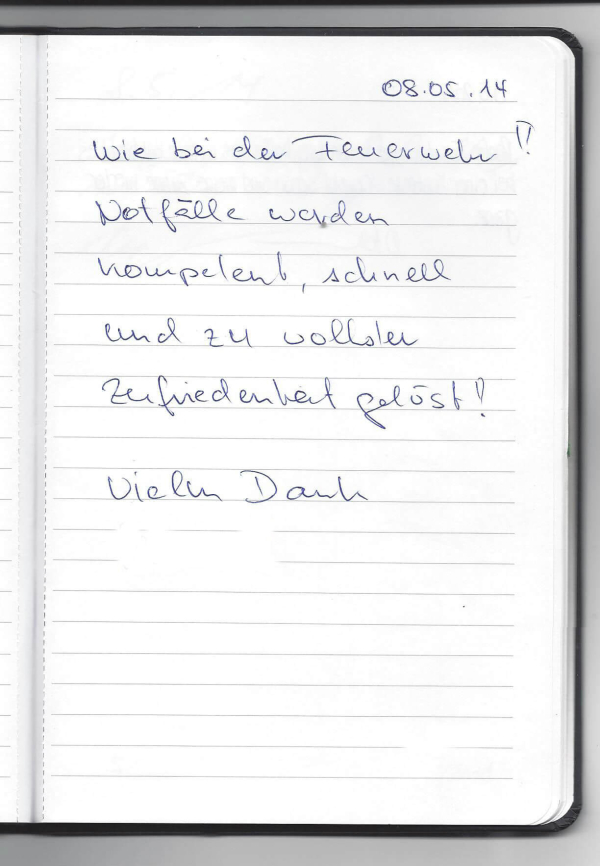 08.05.14
Wie bei der Feuerwehr!!
Notfälle werden
kompetent, schnell
und zu vollster
Zufriedenheit gelöst!
Vielen Dank